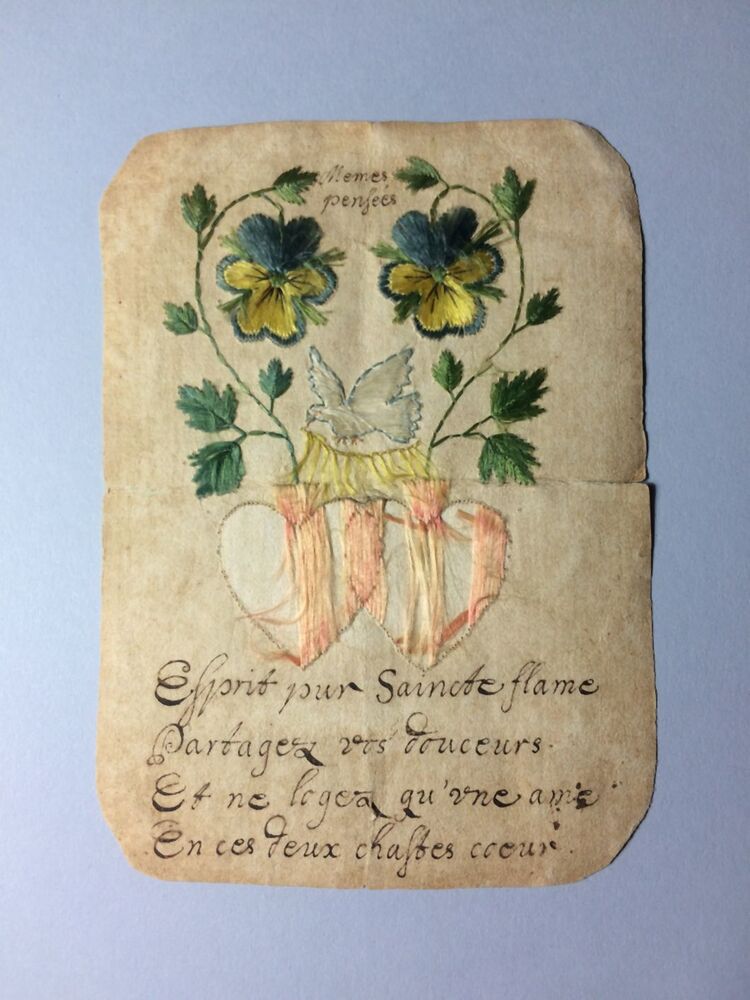 Memes
penſées
Eſprit pur Saincte flame
Partagez vos douceurs.
Et ne logez qu'vne ame
En ces deux chaſtes coeur.